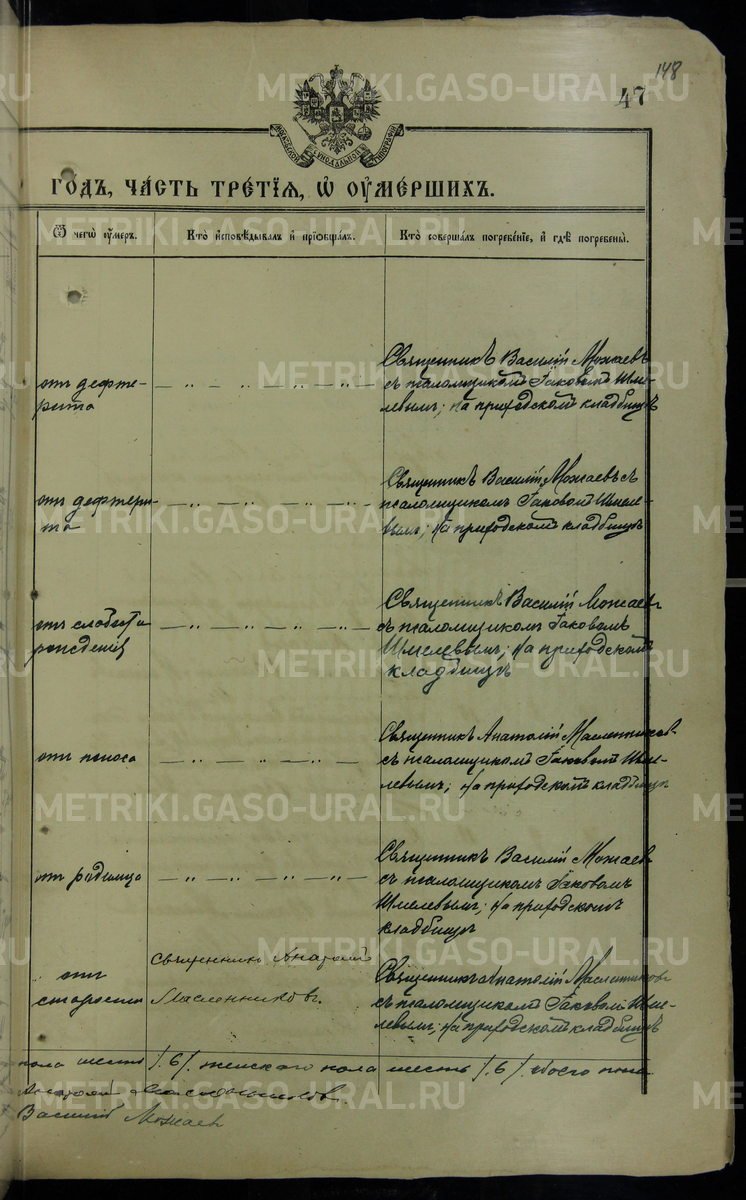 148
47
ГОДЪ, ЧАСТЬ ТРЕТІЯ, Ѡ ОУМЕРШИХЪ.
Ѿ чегѡ оумеръ.
Кто исповѣдывалъ и пріобщалъ.
Кто совершалъ погребеніе, и гдѣ погребены.
отъ дефте-
рита
Священникъ Василій Можаевъ
съ псаломщикомъ Іаковомъ Шме-
левымъ; На приходскомъ кладбищѣ
отъ дефтери-
та
Священникъ Василій Можаевъ съ
псаломщикомъ Іаковомъ Шмеле-
вымъ; На приходскомъ кладбищѣ
отъ слабости
рожденія
Священникъ Василій Можаев
съ псаломщикомъ Іаковомъ
Шмелевымъ; На приходскомъ
кладбищѣ
отъ поноса
Священникъ Анатолій Масленников
съ псаломщикомъ Іаковомъ Шме-
левымъ; На приходскомъ кладбищѣ
отъ родимца
Священникъ Василій Можаев
съ псаломщикомъ Іаковомъ
Шмелевымъ; На приходскомъ
кладбищѣ
отъ
старости
Священникъ Анатолій
Масленниковъ.
Священникъ Анатолій Масленников
съ псаломщикомъ Іаковомъ Шме-
левымъ; На приходскомъ кладбищѣ
пола шесть /.6/. женскаго пола шесть /.6/. обоего пола
Анатолій Масленниковъ.
Василій Можаев
METRIKI.GASO-URAL.RU